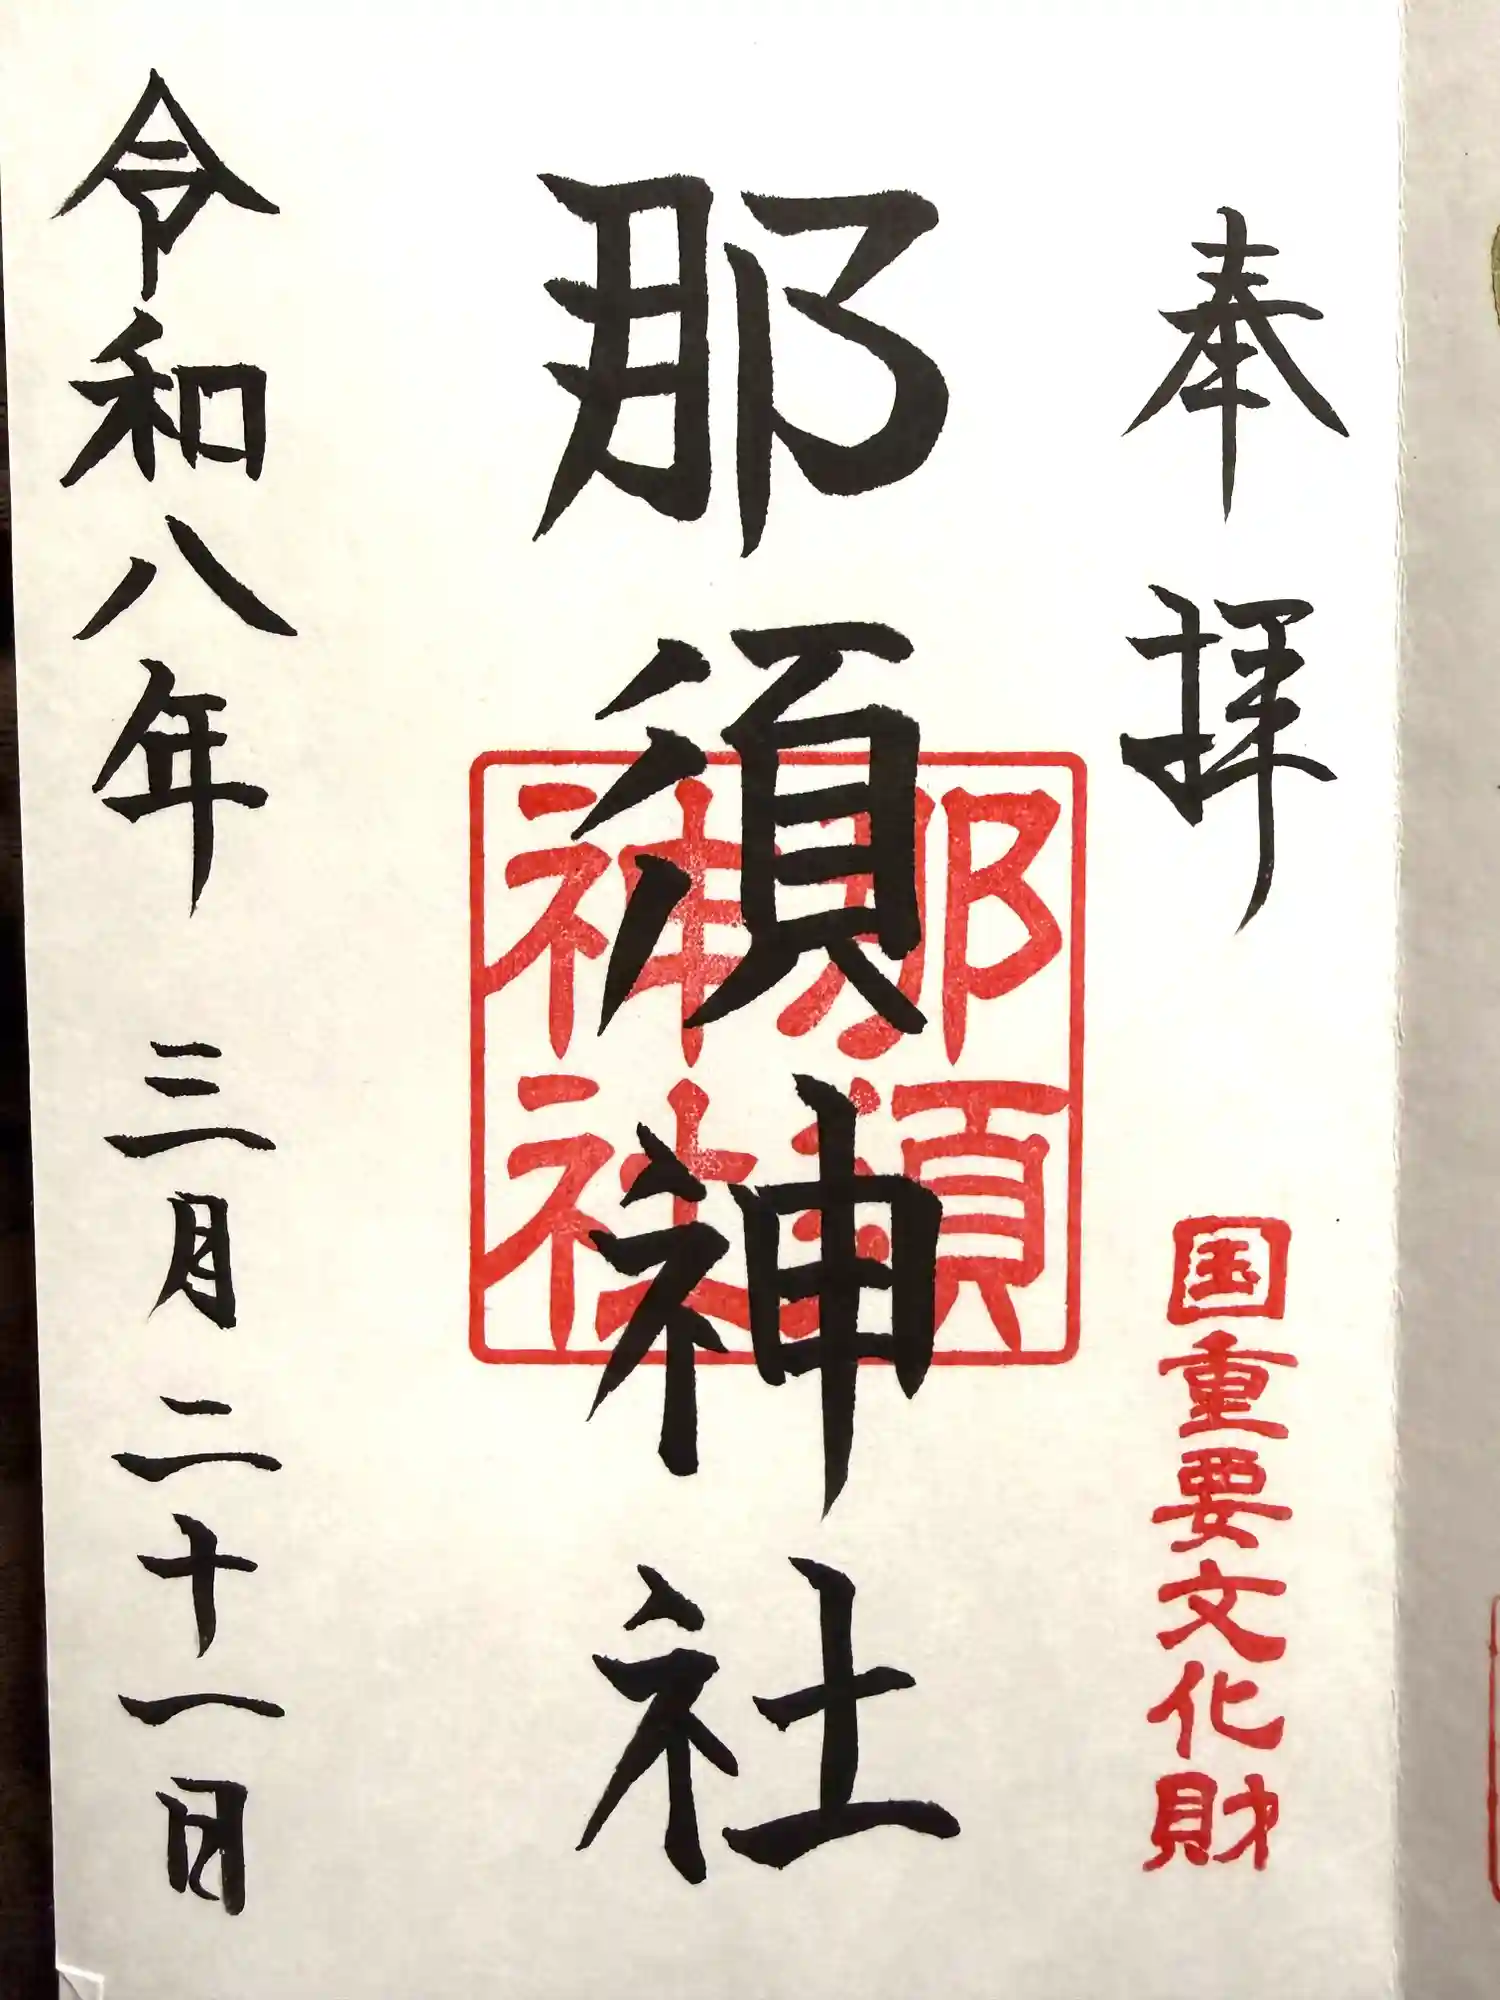 奉拝
国重要文化財
那須神社
那須
神社
令和八年 三月二十一日